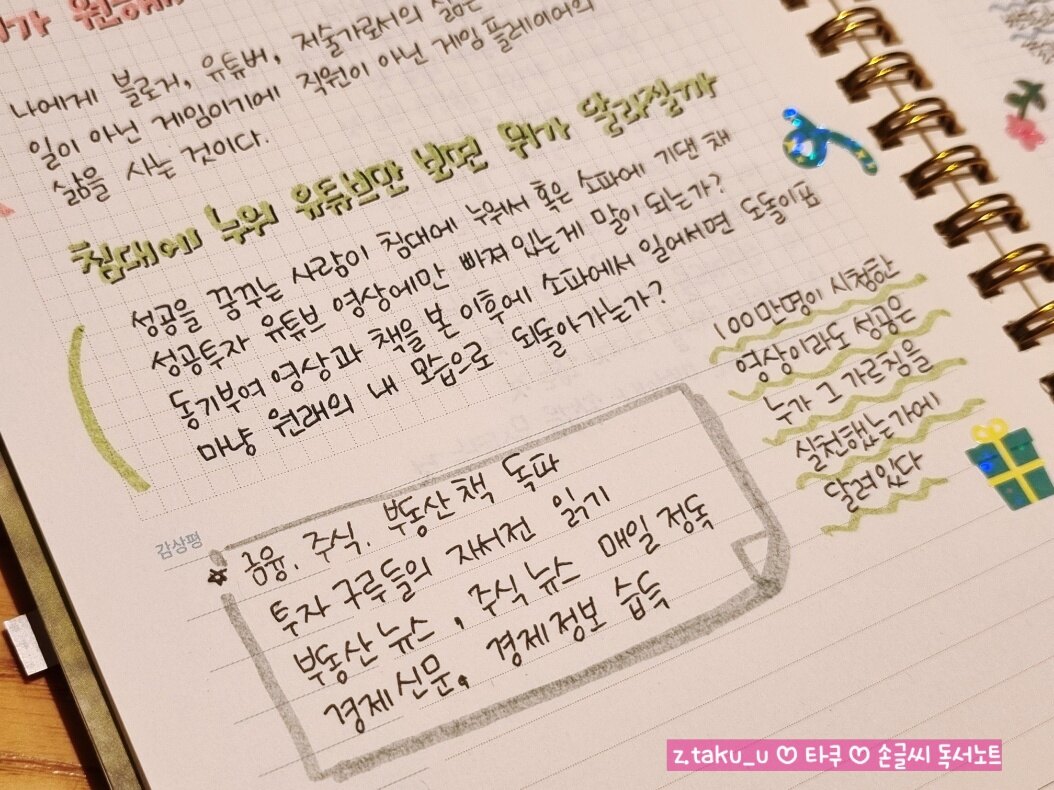 나에게 블로거, 유튜버, 저술가로서의 삶은
일이 아닌 게임이기에 직원이 아닌 게임 플레이어의
삶을 사는 것이다.
침대에 누워 유튜브만 보면 뭐가 달라질까
성공을 꿈꾸는 사람이 침대에 누워서 혹은 소파에 기댄 채
성공투자 유튜브 영상에만 빠져 있는게 말이 되는가?
동기부여 영상과 책을 본 이후에 소파에서 일어서면 도돌이표
마냥 원래의 내 모습으로 되돌아가는가?
100만명이 시청한
영상이라도 성공은
누가 그 가르침을
실천했는가에
달려있다
감상평
금융, 주식, 부동산 책 독파
투자 구루들의 자서전 읽기
부동산 뉴스, 주식 뉴스 매일 정독
경제신문, 경제정보 습득
z.taku_u ♡ 타쿠 ♡ 손글씨 독서노트